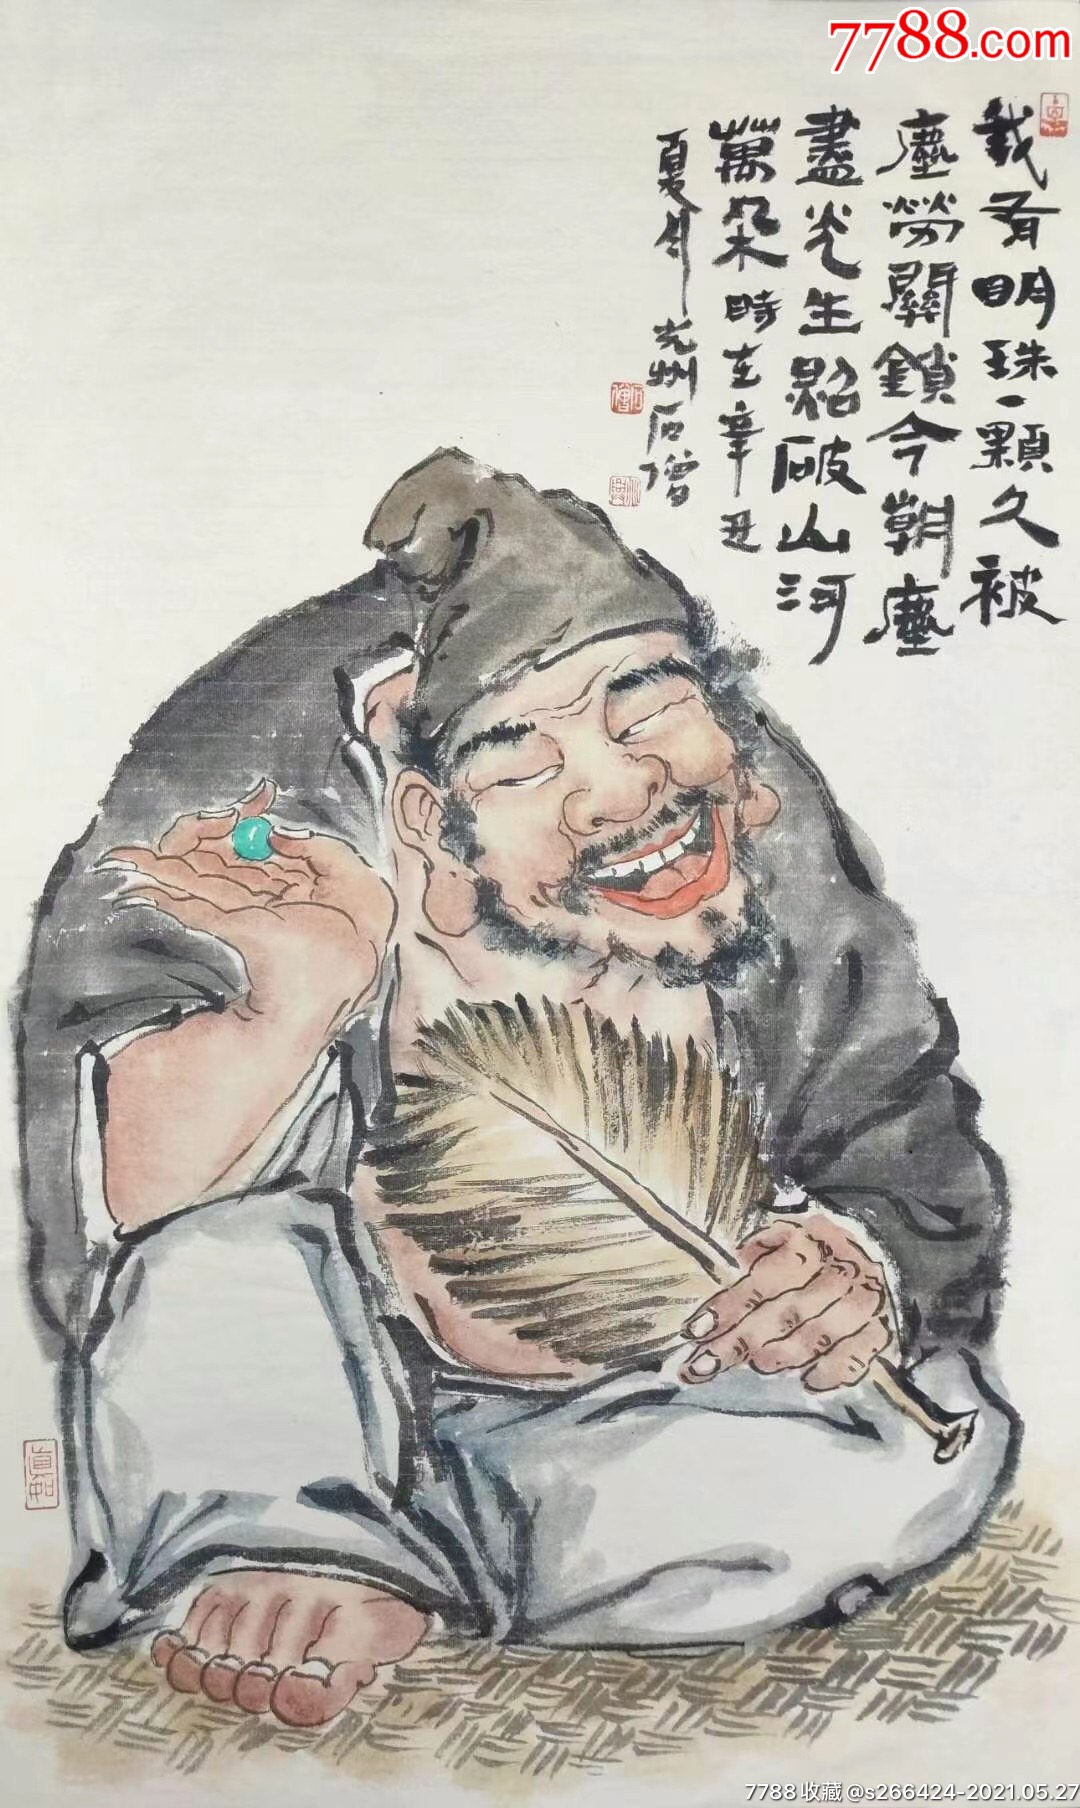 7788.com
我有明珠一顆久被
塵勞關鎖今朝塵
盡光生照破山河
萬朵時在辛丑
夏月光州石僧
石僧
真如
7788收藏@s266424-2021.05.27